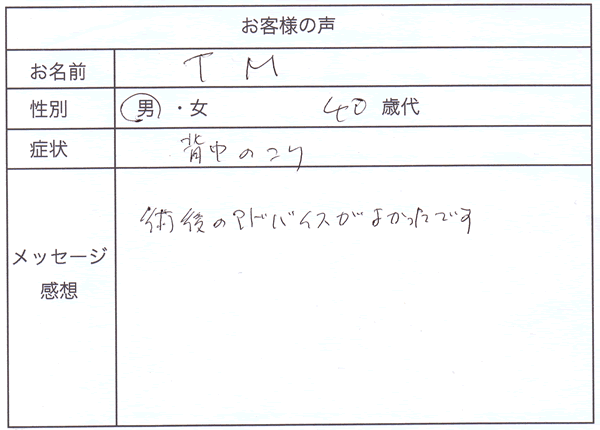 お客様の声
お名前 T M
性別 男・女 40 歳代
症状 背中のこり
メッセージ
感想
術後のアドバイスがよかったです